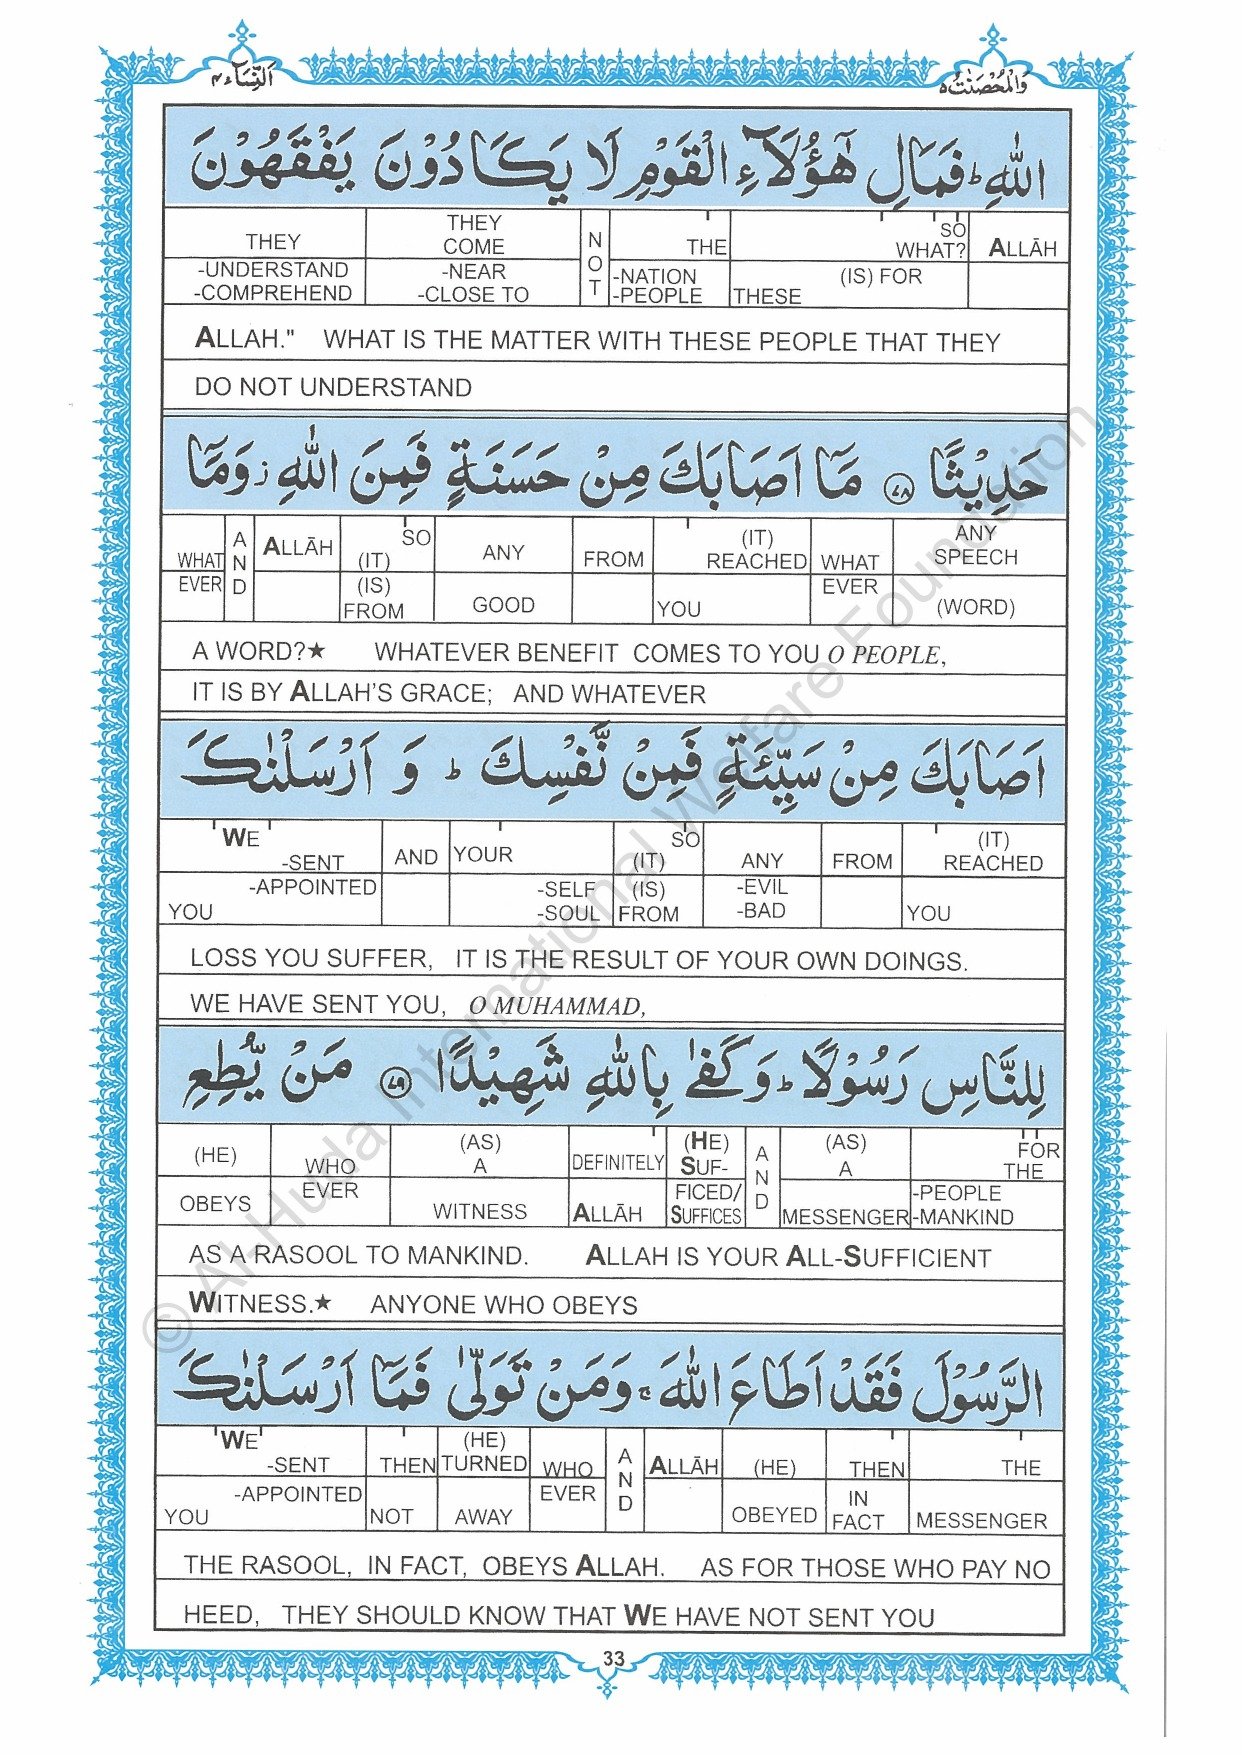 اَلنِّسَآء ٤
وَالْمُحْصَنٰتُ ٥
اللّٰهِ ؕ فَمَالِ هٰٓؤُلَآءِ الْقَوْمِ لَا يَكَادُوْنَ يَفْقَهُوْنَ
THEY -UNDERSTAND -COMPREHEND
THEY COME -NEAR -CLOSE TO
NOT
THE -NATION -PEOPLE
SO WHAT? (IS) FOR THESE
ALLĀH
ALLAH." WHAT IS THE MATTER WITH THESE PEOPLE THAT THEY
DO NOT UNDERSTAND
حَدِيْثًا ٧٨ مَآ اَصَابَكَ مِنْ حَسَنَةٍ فَمِنَ اللّٰهِ ز وَمَآ
WHAT EVER
AND
ALLĀH
SO (IT) (IS) FROM
ANY GOOD
FROM
(IT) REACHED YOU
WHAT EVER
ANY SPEECH (WORD)
A WORD?★ WHATEVER BENEFIT COMES TO YOU O PEOPLE,
IT IS BY ALLAH'S GRACE; AND WHATEVER
اَصَابَكَ مِنْ سَيِّئَةٍ فَمِنْ نَّفْسِكَ ؕ وَ اَرْسَلْنٰكَ
WE -SENT -APPOINTED YOU
AND
YOUR -SELF -SOUL
SO (IT) (IS) FROM
ANY -EVIL -BAD
FROM
(IT) REACHED YOU
LOSS YOU SUFFER, IT IS THE RESULT OF YOUR OWN DOINGS.
WE HAVE SENT YOU, O MUHAMMAD,
لِلنَّاسِ رَسُوْلًا ؕ وَكَفٰى بِاللّٰهِ شَهِيْدًا ٧٩ مَنْ يُّطِعِ
(HE) OBEYS
WHO EVER
(AS) A WITNESS
DEFINITELY ALLĀH
(HE) SUF-FICED/ SUFFICES
AND
(AS) A MESSENGER
FOR THE -PEOPLE -MANKIND
AS A RASOOL TO MANKIND. ALLAH IS YOUR ALL-SUFFICIENT
WITNESS.★ ANYONE WHO OBEYS
الرَّسُوْلَ فَقَدْ اَطَاعَ اللّٰهَ ۚ وَمَنْ تَوَلّٰى فَمَآ اَرْسَلْنٰكَ
WE -SENT -APPOINTED YOU
THEN NOT
(HE) TURNED AWAY
WHO EVER
AND
ALLĀH
(HE) OBEYED
THEN IN FACT
THE MESSENGER
THE RASOOL, IN FACT, OBEYS ALLAH. AS FOR THOSE WHO PAY NO
HEED, THEY SHOULD KNOW THAT WE HAVE NOT SENT YOU
33
© Al-Huda International Welfare Foundation